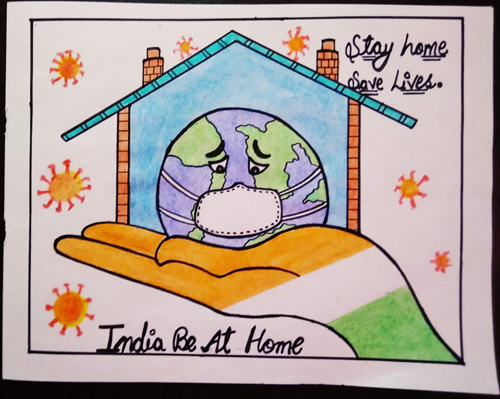 Stay home
Save Lives.
India Be At Home